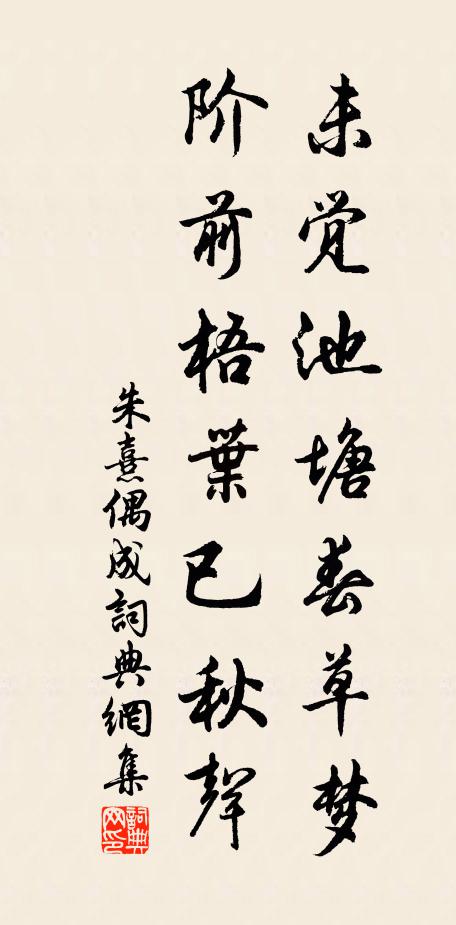 未觉池塘春草梦
阶前梧葉已秋聲
朱熹偶成詞典網集
詞典網印